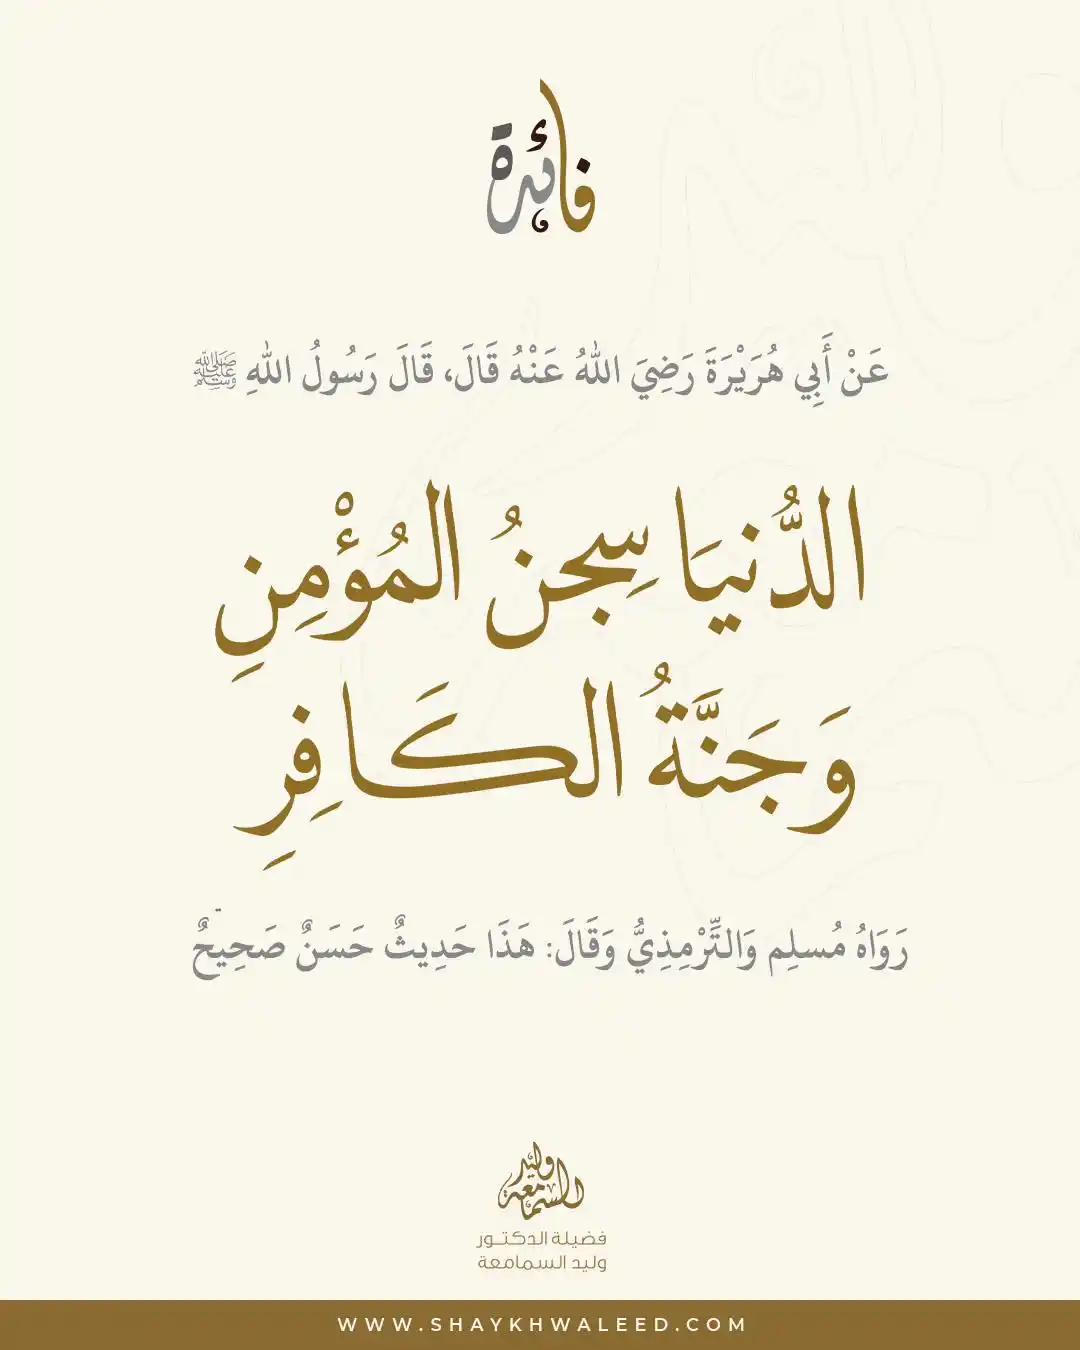 فائدة
عَنْ أَبِي هُرَيْرَةَ رَضِيَ اللهُ عَنْهُ قَالَ، قَالَ رَسُولُ اللهِ ﷺ
الدُّنيَا سِجنُ المُؤْمِنِ
وَجَنَّةُ الكَافِرِ
رَوَاهُ مُسلِم وَالتِّرْمِذِيُّ وَقَالَ: هَذَا حَدِيثٌ حَسَنٌ صَحِيحٌ
وليد
السمامعة
فضيلة الدكتور
وليد السمامعة
WWW.SHAYKHWALEED.COM